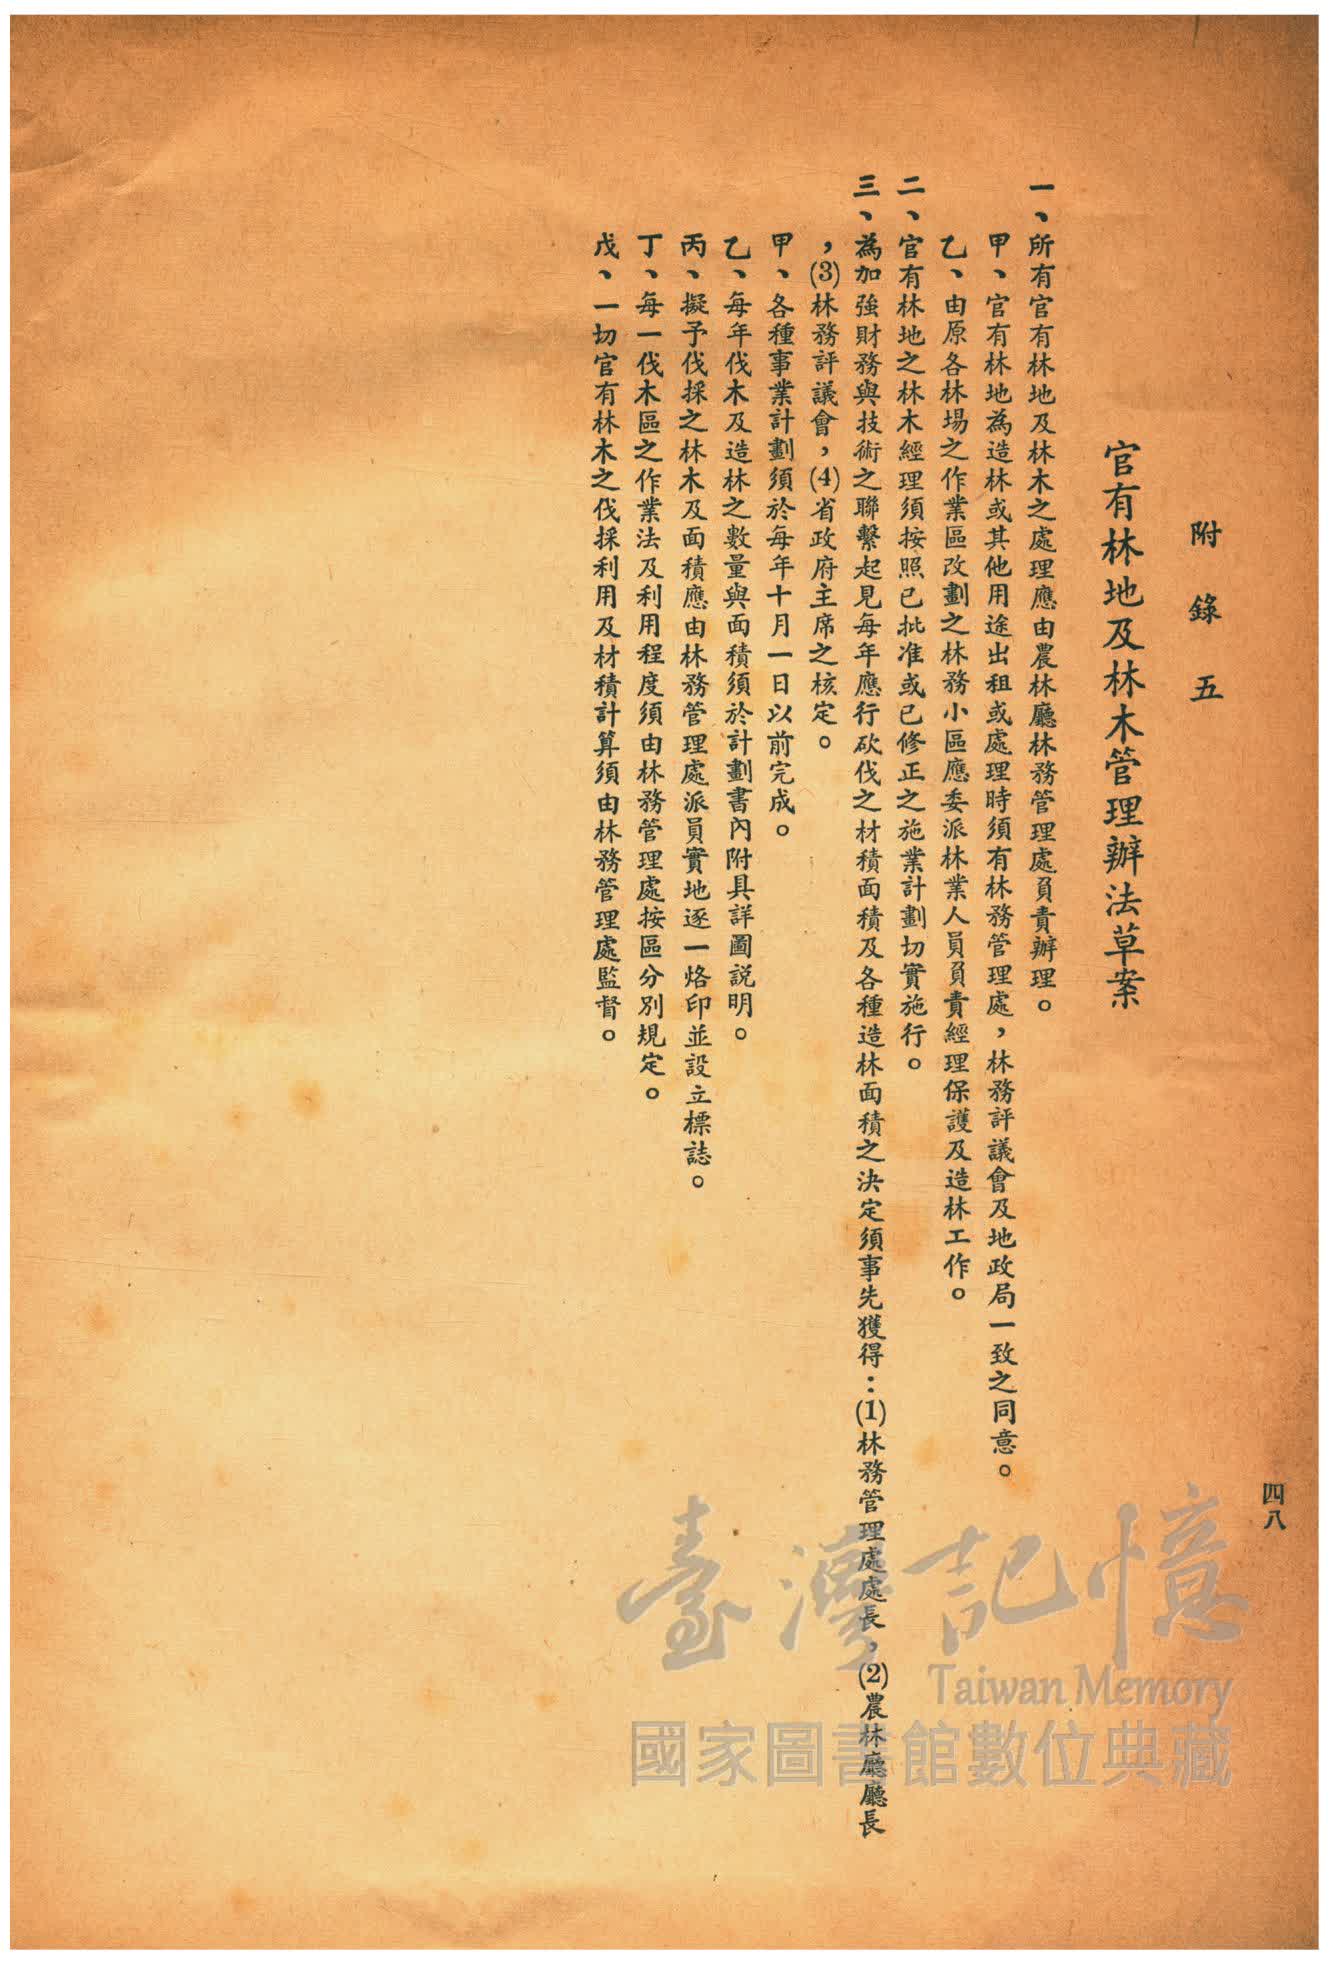 四八
附錄五
官有林地及林木管理辦法草案
一、所有官有林地及林木之處理應由農林廳林務管理處負責辦理。
甲、官有林地為造林或其他用途出租或處理時須有林務管理處，林務評議會及地政局一致之同意。
乙、由原各林場之作業區改劃之林務小區應委派林業人員負責經理保護及造林工作。
二、官有林地之林木經理須按照已批准或已修正之施業計劃切實施行。
三、為加強財務與技術之聯繫起見每年應行砍伐之材積面積及各種造林面積之決定須事先獲得：(1)林務管理處處長，(2)農林廳廳長
，(3)林務評議會，(4)省政府主席之核定。
甲、各種事業計劃須於每年十月一日以前完成。
乙、每年伐木及造林之數量與面積須於計劃書內附具詳圖説明。
丙、擬予伐採之林木及面積應由林務管理處派員實地逐一烙印並設立標誌。
丁、每一伐木區之作業法及利用程度須由林務管理處按區分別規定。
戊、一切官有林木之伐採利用及材積計算須由林務管理處監督。
臺灣記憶
Taiwan Memory
國家圖書館數位典藏